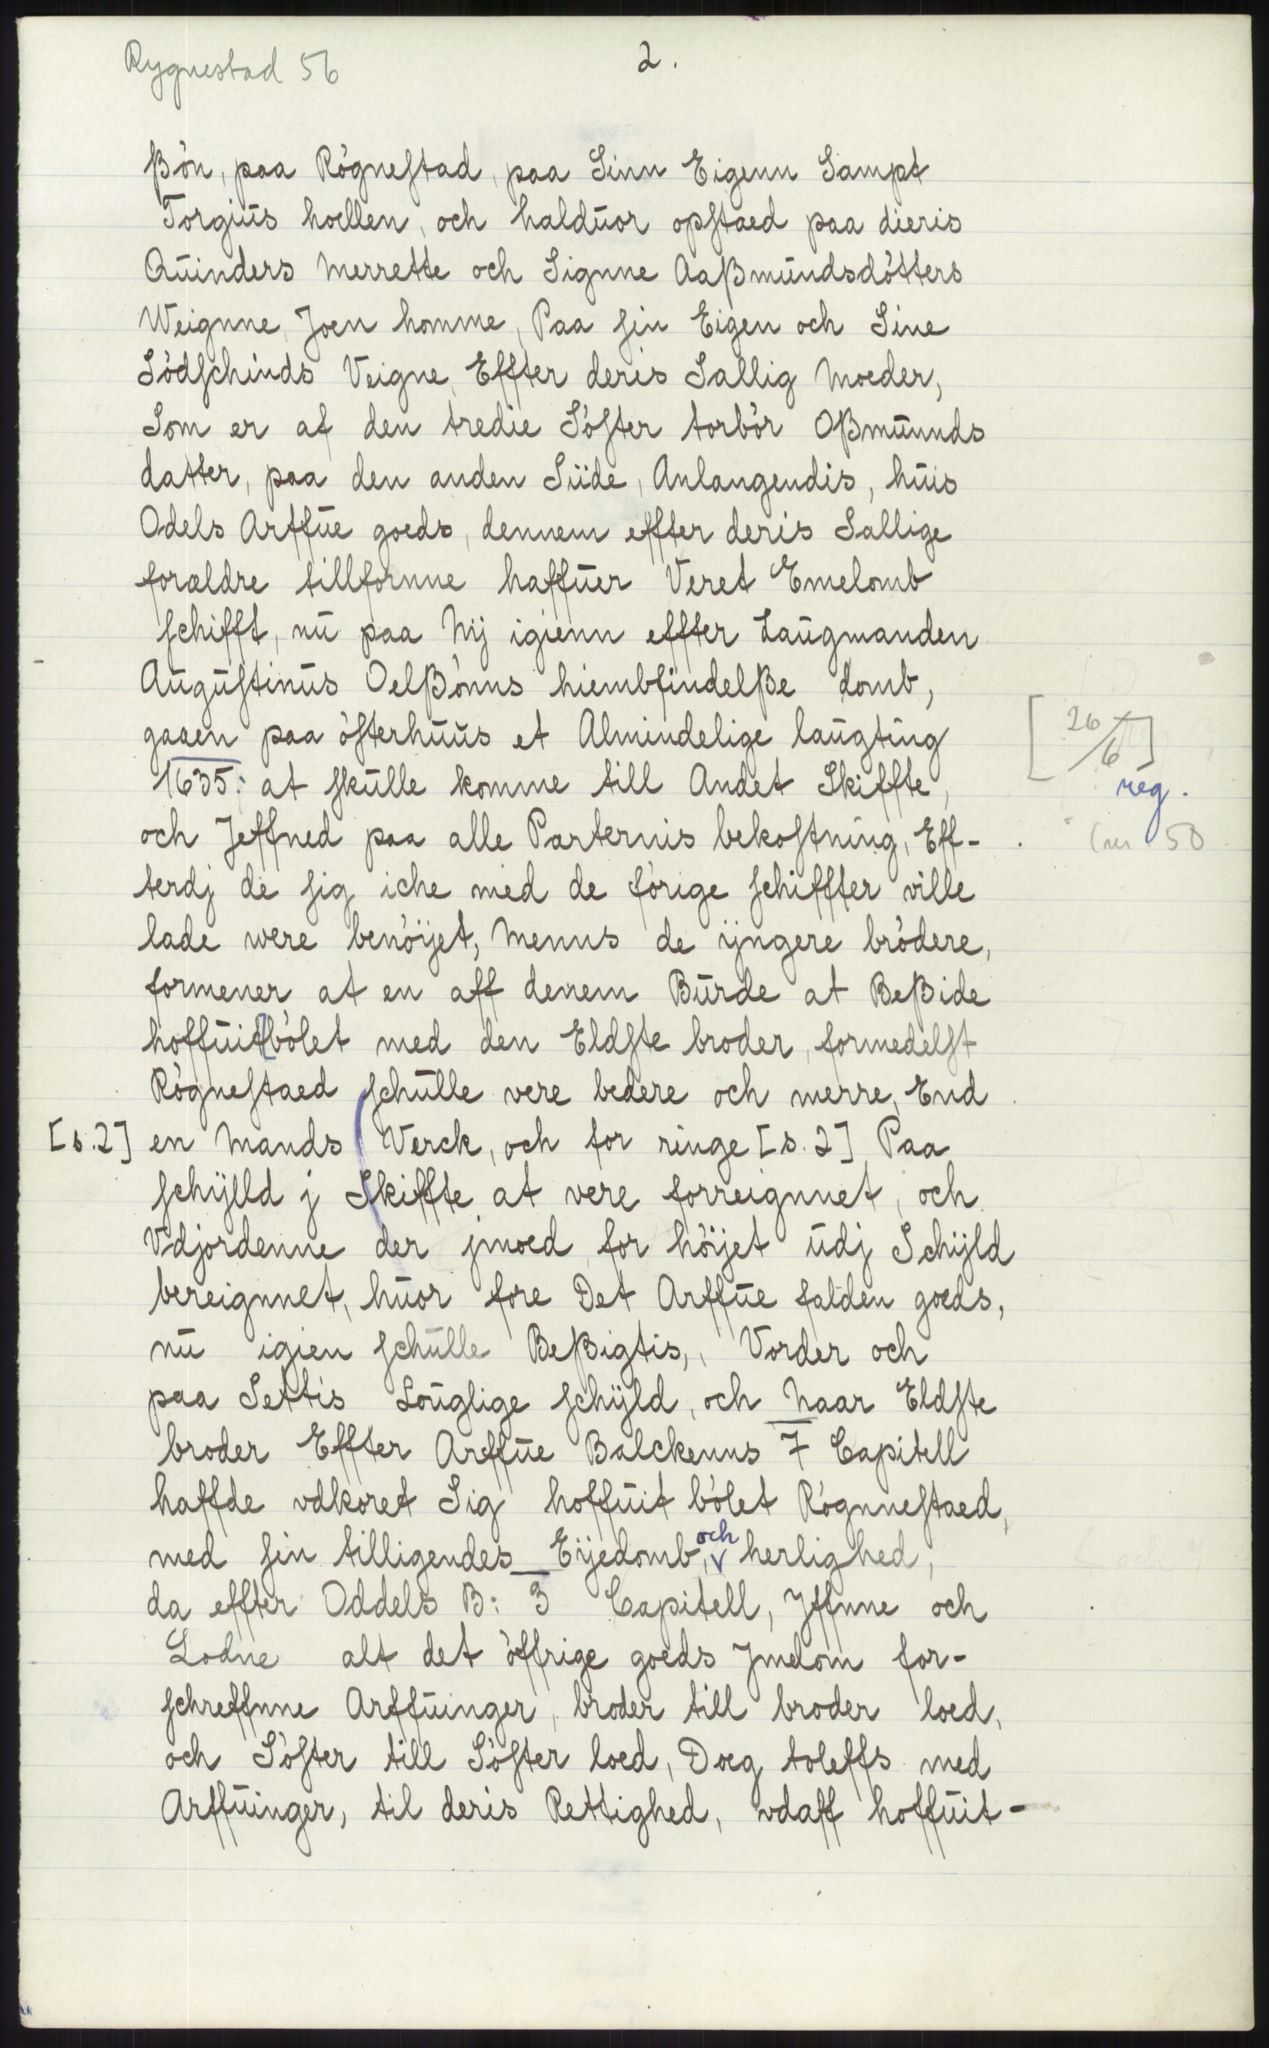 Rygnestad 56
2.
ßòn, paa Rògnestad, paa Sinn Eigenn Sampt
Torgius hoellen, och halduor opstaed paa dieris
Quinders Merrette och Signne Aaßmundsdòtters
Weignne, Joen homme, Paa sin Eigen och Sine
Sòdschinds Veigne, Effter deris Sallig Moeder,
Som er af den tredie Sòster torbòr Oßmunnds
datter, paa den anden Siide, Anlangendis, huis
Odels Arffue goeds, dennem effter deris Sallige
forældre tillfornne haffuer Veret Emelomb
schifft, nu paa Nij igienn effter Laugmanden
Augustinus Oelßònns hiembfindelße domb,
gaaen paa òsterhuus et Almindelige laugting
1635: at skulle komme till Andet Skiffte,
[26/6]
reg.
och Jeffned paa alle Parternis bekostning, Eff-
(nr 50
terdj de sig iche med de fòrige schiffter ville
lade were benòijet, Menns de ijngere bròdere,
formener at en aff denem Burde at Beßide
hoffuit[bòlet med den Eldste broder, formedelst
Rògnestaed schulle vere bedere och merre, End
[s.2] en Mands Verck, och for ringe [s. 2] Paa
schijlld j Skiffte at vere forreignnet, och
Vdjordenne der jmoed for hòijet udj Schijld
bereignnet, huor fore Det Arffue falden goeds,
nu igien schulle Beßigtis, Vorder och
paa Settis Louglige schijld, och Naar Eldste
broder Effter Arffue Balckenns 7 Capitell
haffde vdkoret Sig hoffuit bòlet Rògnnestaed,
med sin tilligendes Eijedomb, och herlighed,
da effter Oddels B: 3 Capitell, Jffnne och
Lodne alt det òffrige goeds Jmelom for-
schreffnne Arffuinger, broder till broder loed,
och Sòster till Sòster loed, Doeg toleffs med
Arffuinger, til deris Rettighed, vdaff hoffuit-